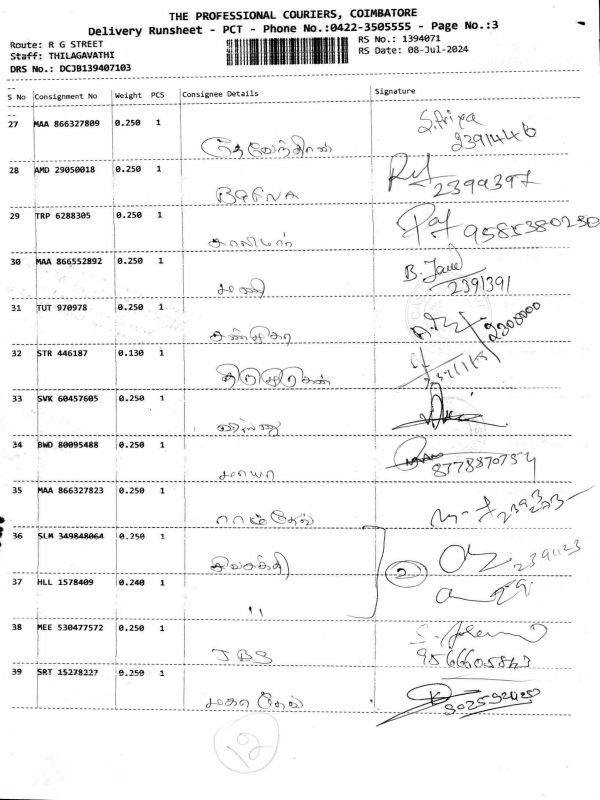 THE PROFESSIONAL COURIERS, COIMBATORE
Delivery Runsheet - PCT - Phone No.:0422-3505555 - Page No.:3
Route: R G STREET
RS No.: 1394071
Staff: THILAGAVATHI
RS Date: 08-Jul-2024
DRS No.: DCJB139407103
S No Consignment No Weight PCS Consignee Details Signature
27 MAA 866327809 0.250 1
S.Priya
2391446
28 AMD 29050018 0.250 1 BAFNA
2399397
29 TRP 6288305 0.250 1
9585380230
30 MAA 866552892 0.250 1 மணி
2391391
31 TUT 970978 0.250 1
2300000
32 STR 446187 0.130 1
33 SVK 60457605 0.250 1 விஸ்ணு
34 BWD 80095488 0.250 1 மாயா
8778870754
35 MAA 866327823 0.250 1 ராம்தேவ்
2393273
36 SLM 349848064 0.250 1 சிவசக்தி
2
2391123
37 HLL 1578409 0.240 1 "
38 MEE 530477572 0.250 1 JBS
9566605843
39 SRT 15278227 0.250 1 மகாதேவ்
12